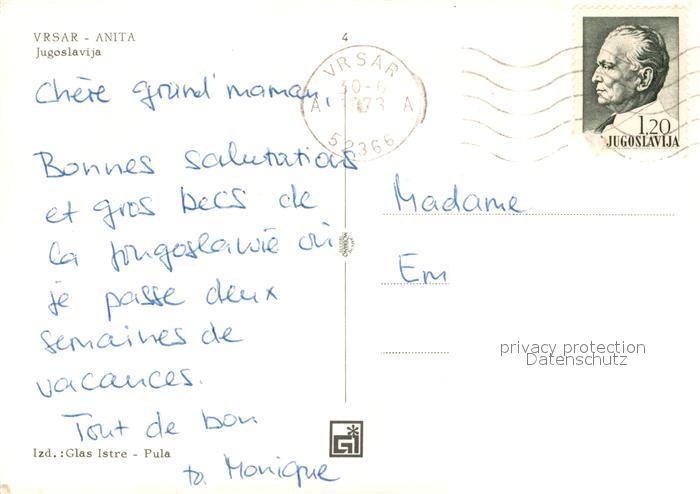 VRSAR - ANITA
Jugoslavija
4
VRSAR
30-6
A 1973 A
52366
1,20
JUGOSLAVIJA
Chère grand'maman,
Bonnes salutations
et gros becs de
la Jougoslawie où
je passe deux
semaines de
vacances.
Tout de bon
ta Monique
Madame
Em
privacy protection
Datenschutz
Izd.:Glas Istre - Pula